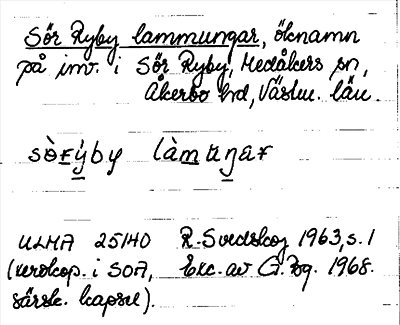 Sör Ryby lammungar, öknamn
på inv. i Sör Ryby, Medåkers sn,
Åkerbo hd, Västm. län.
sòrýby làmuŋar
ULMA 25140 R. Svedskog 1963, s. 1
(xerokop. i SOA, Exc. av G. Bg. 1968.
särsk. kapsel).